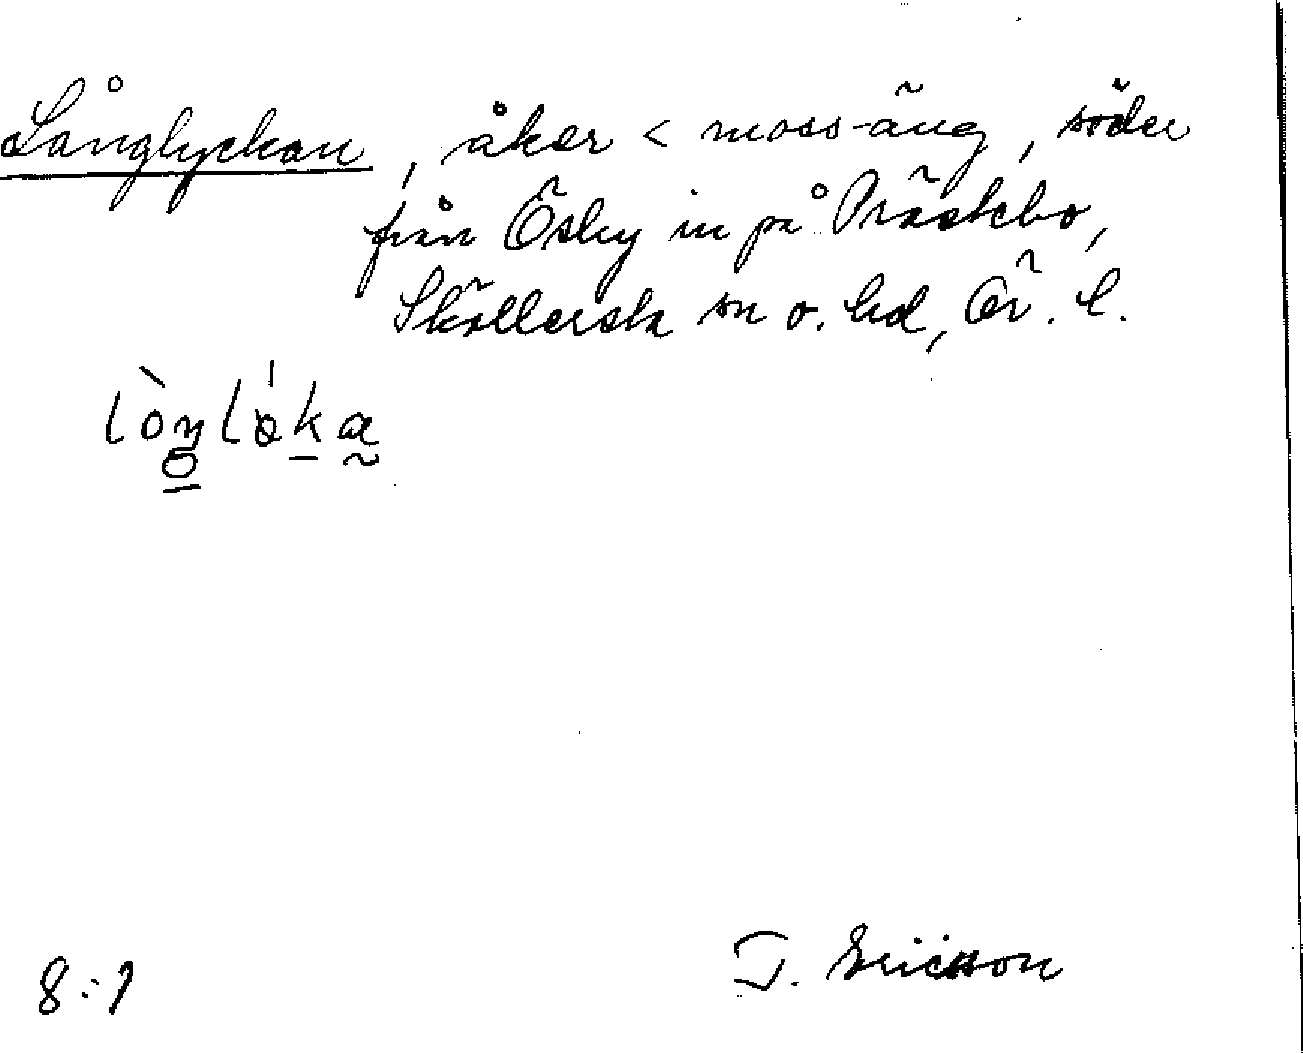 Långlyckan, åker < moss-äng, söder
från Ösby in på Präskbo,
Sköllersta sn o. hd, Ör. l.
8:1
T. Ericsson